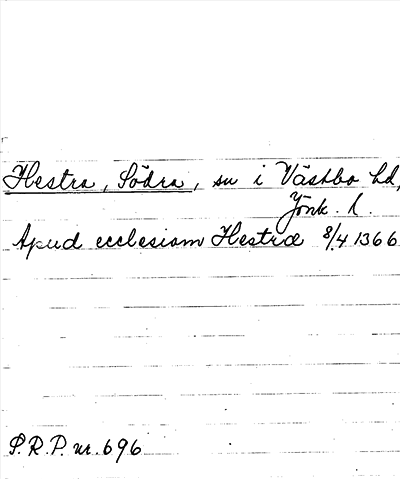 Hestra, Södra, sn i Västbo hd,
Jönk. l.
Apud ecclesiam Hestræ 8/4 1366
S.R.P. nr. 696